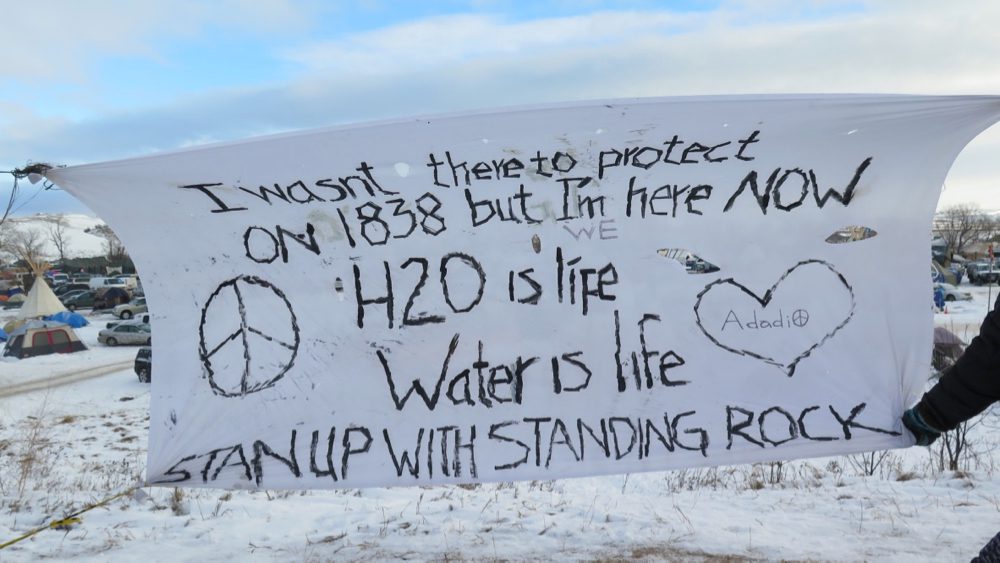 I wasnt there to protect
ON 1838 but I'm here NOW
WE
H2O is life
Adadi
Water is life
STAN UP WITH STANDING ROCK